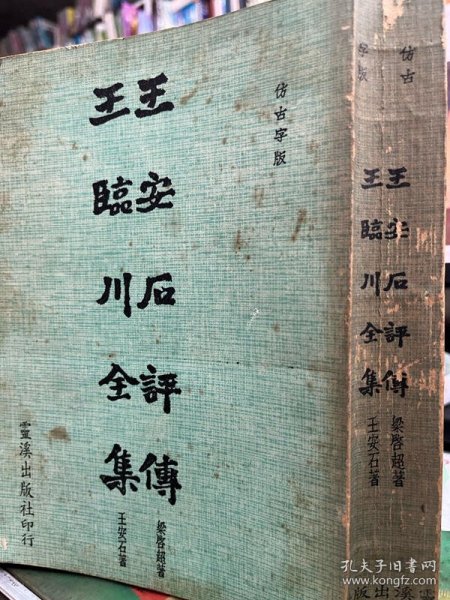 仿古字版
王安石評傳
王臨川全集
梁啓超著
王安石著
靈溪出版社印行
仿古
字版
王安石評傳
王臨川全集
梁啓超著
王安石著
溪出版
孔夫子旧书网
kongfz.com